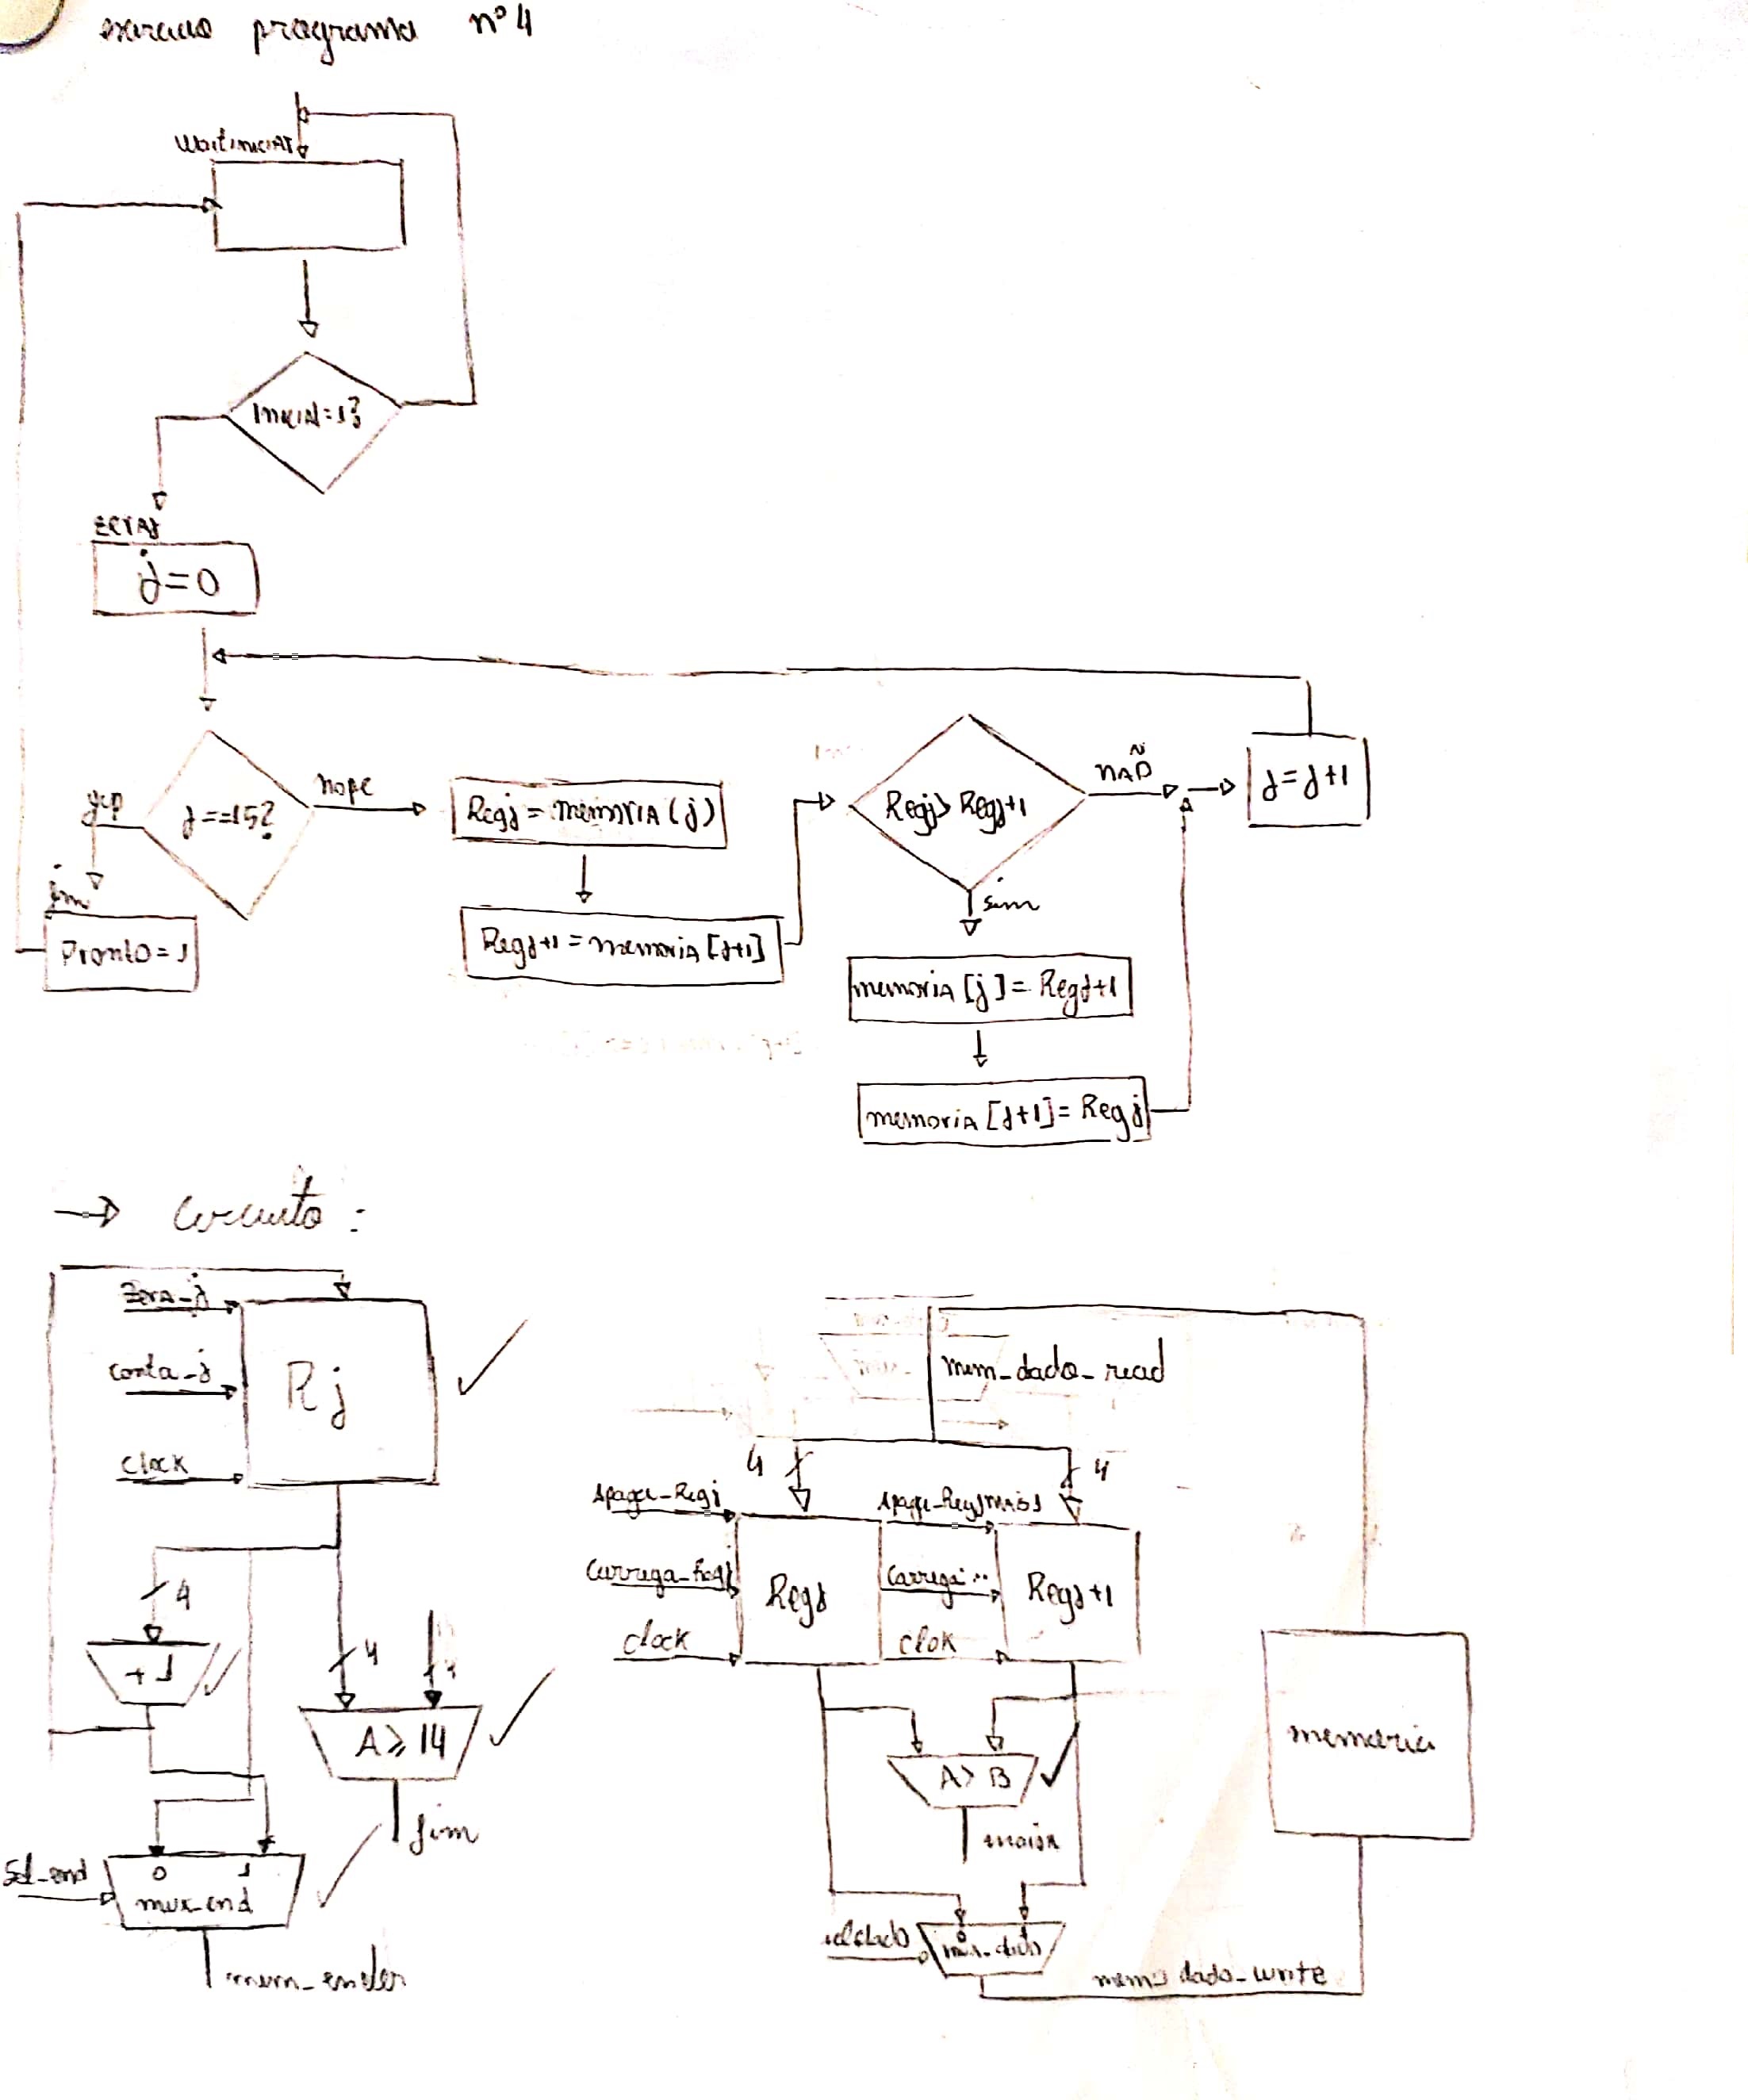 programa nº 4
Waitiniciar
Inicial=1?
zeraj
j=0
j==15?
yep
nope
fim
Pronto=1
Regj = memoria(j)
Regj+1 = memoria[j+1]
Regj> Regj+1
NÃO
sim
j=j+1
memoria[j]= Regj+1
memoria[j+1]= Regj
→ Circuito :
Zera_j
conta_j
clock
Rj
4
+1
4
A≥14
fim
Sel_end
0 1
mux_end
mem_ender
mem_dado_read
4
4
Apaga_Regj
Carrega_Regj
clock
Regj
Apaga_Regjmais1
Carrega...
clok
Regj+1
A> B
maior
seldado
0
mux_dado
mem_dado_write
memoria